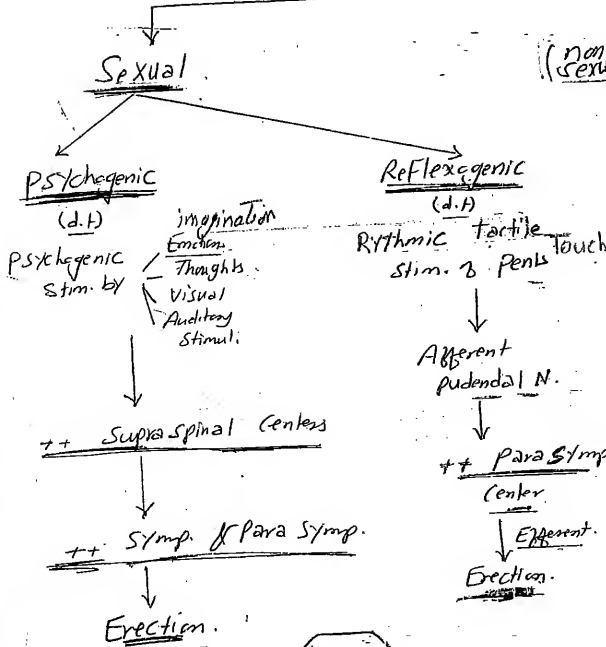 Sexual
(non
sexu
Psychogenic
(d.t)
Psychogenic
Stim. by
imagination
Emotions
Thoughts.
Visual
Auditory
Stimuli
++ Supraspinal Centers
++ Symp. & Para Symp.
Erection.
Reflexogenic
(d.t)
Rythmic tactile Touch
Stim. of Penis
Afferent
pudendal N.
++ Para Symp
Center
Efferent.
Erection.